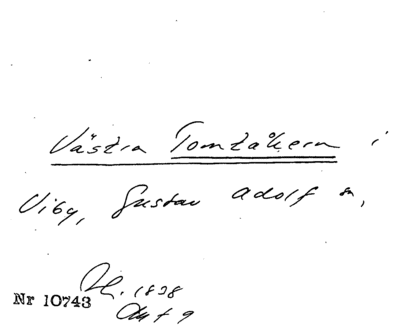 Västra Tomtåkern i
Viby, Gustav Adolf sn,
1838
Nr 10743
Akt 9